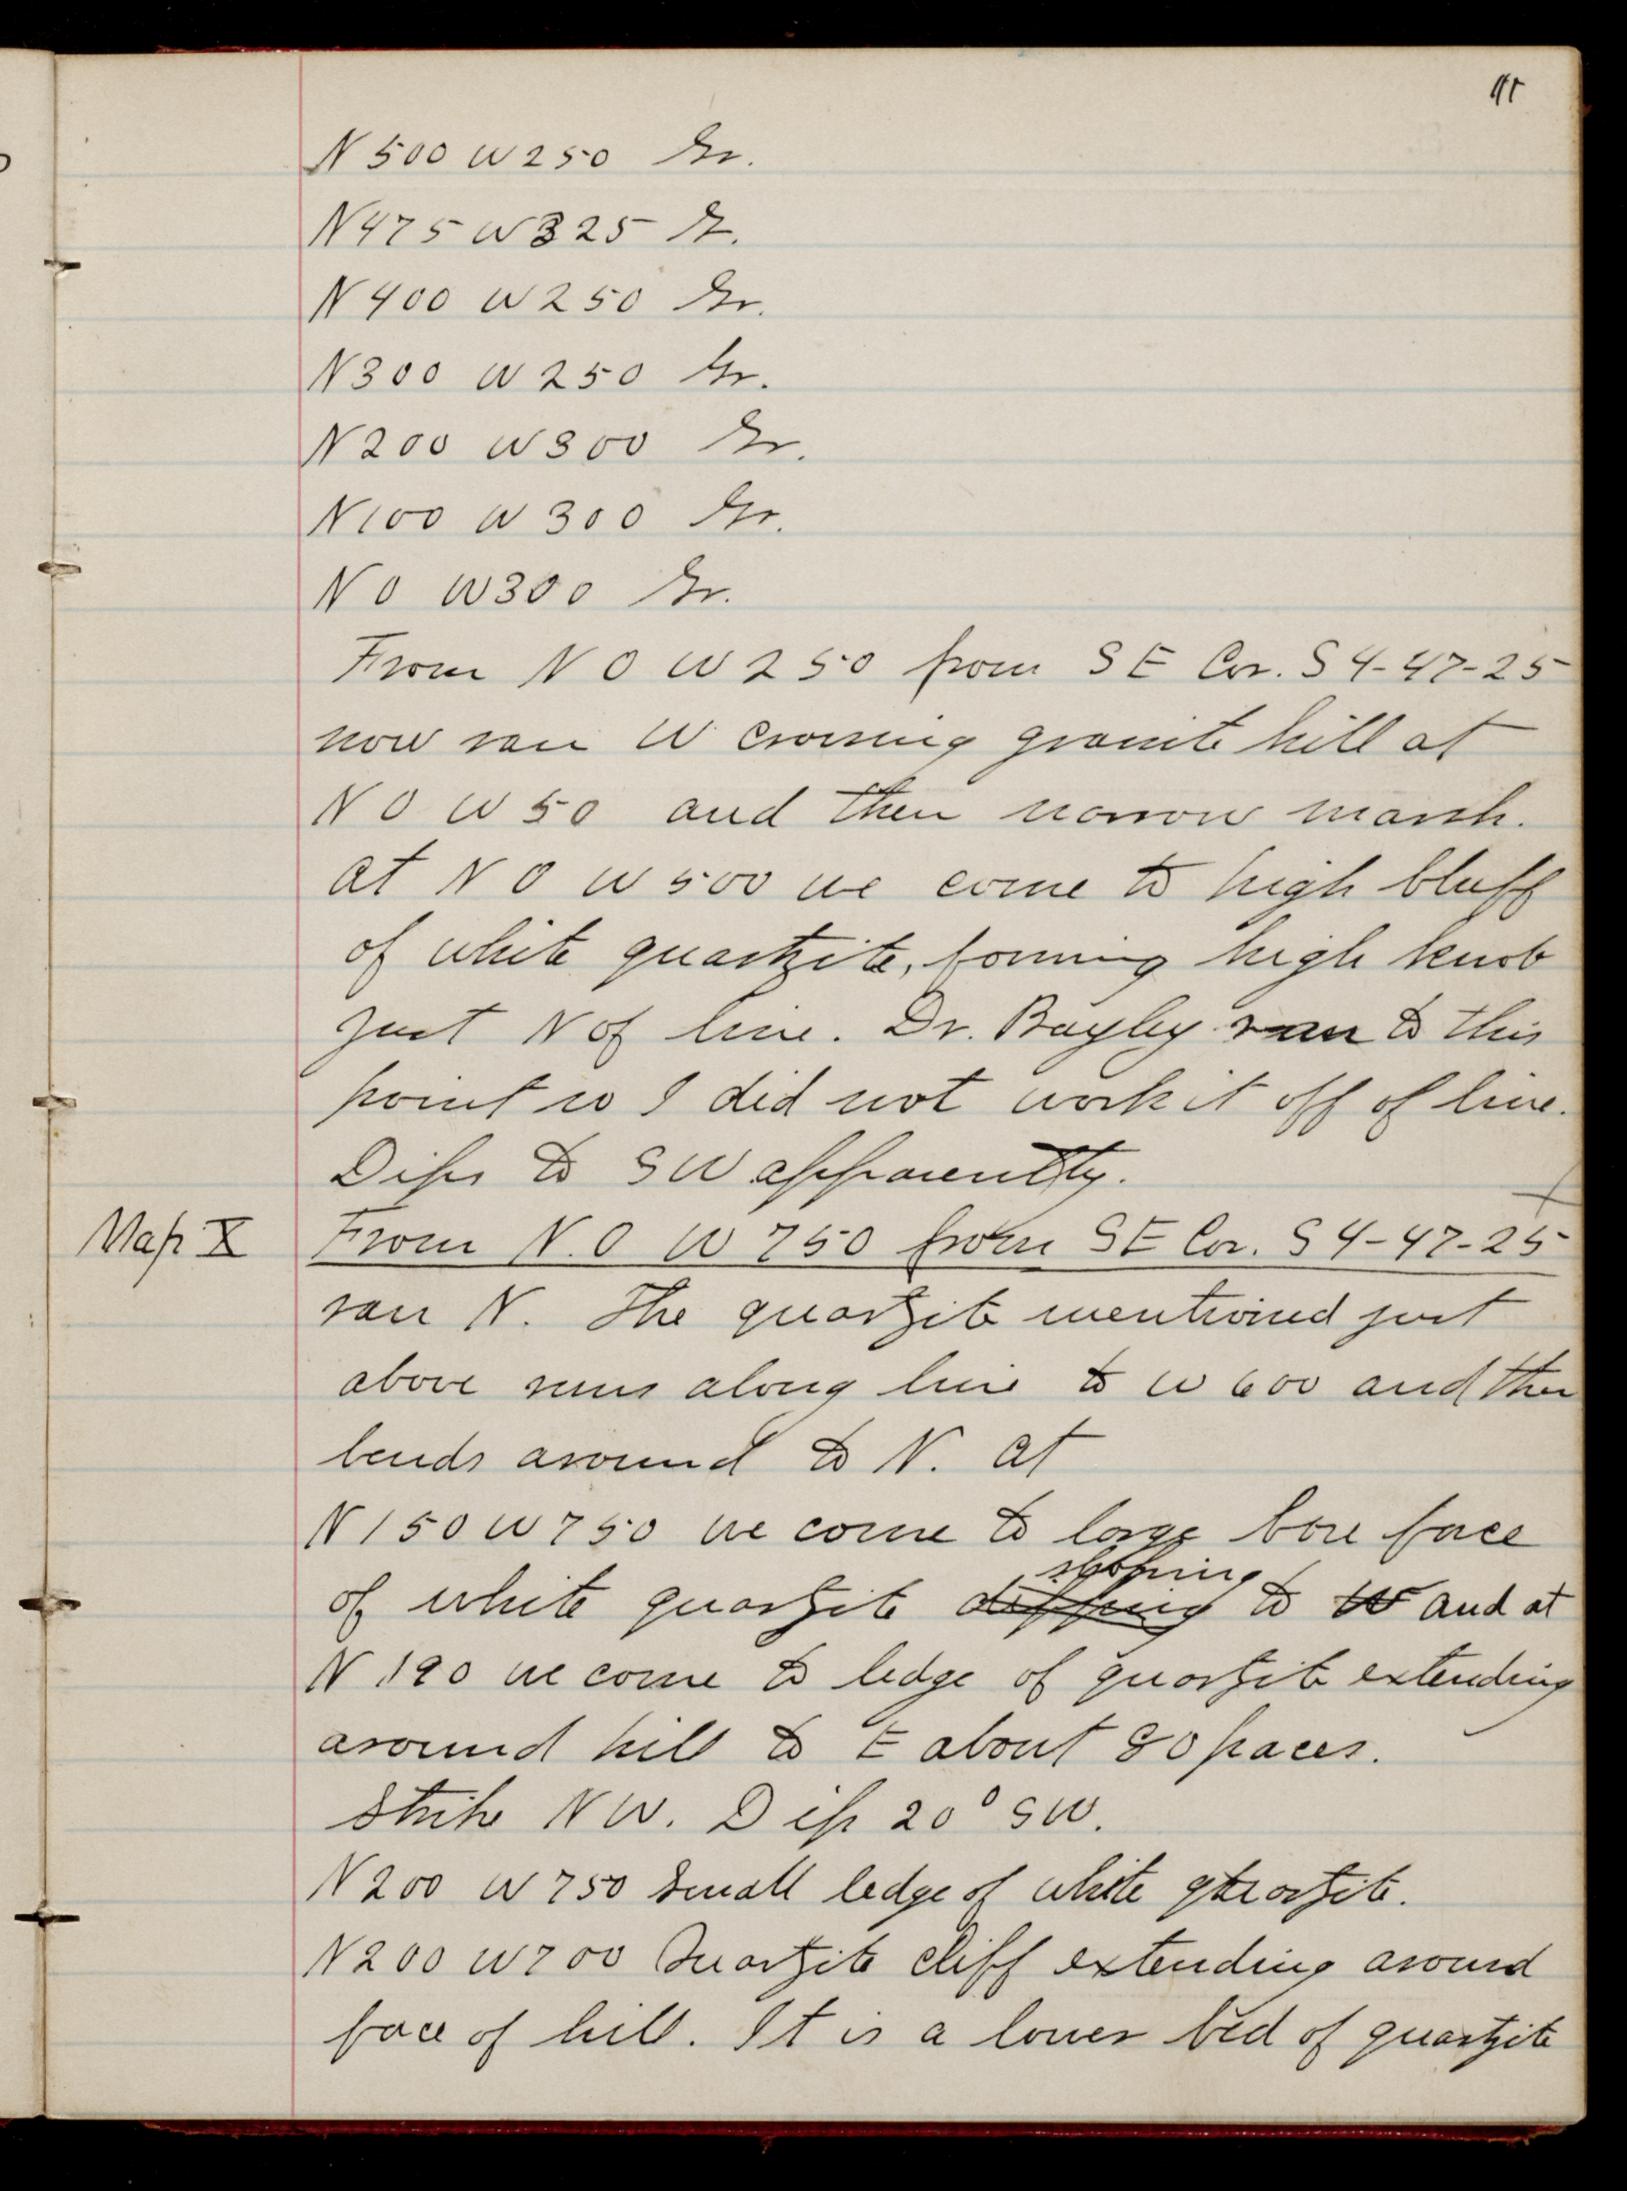 N 500 W 250 Gr.
N 475 W 325 Gr.
N 400 W 250 Gr.
N 300 W 250 Gr.
N 200 W 300 Gr.
N 100 W 300 Gr.
N 0 W 300 Gr.
From N 0 W 250 from S E Cor. S 4-47-25
now ran W crossing granite hill at
N 0 W 50 and then narrow marsh.
At N 0 W 500 we come to high bluff
of white quartzite, forming high knob
just N of line. Dr. Bayley ran to this
point so I did not work it off of line.
Dips to S W apparently.
Map X
From N. 0 W 750 from S E Cor. S 4-47-25
ran N. The quartzite mentioned just
above runs along line to W 600 and then
bends around to N. At
N 150 W 750 we come to large bare face
sloping
of white quartzite dipping to W and at
N 190 we come to ledge of quartzite extending
around hill to E about 80 paces.
Strike N W. Dip 20° S W.
N 200 W 750 Small ledge of white quartzite.
N 200 W 700 Quartzite cliff extending around
face of hill. It is a lower bed of quartzite